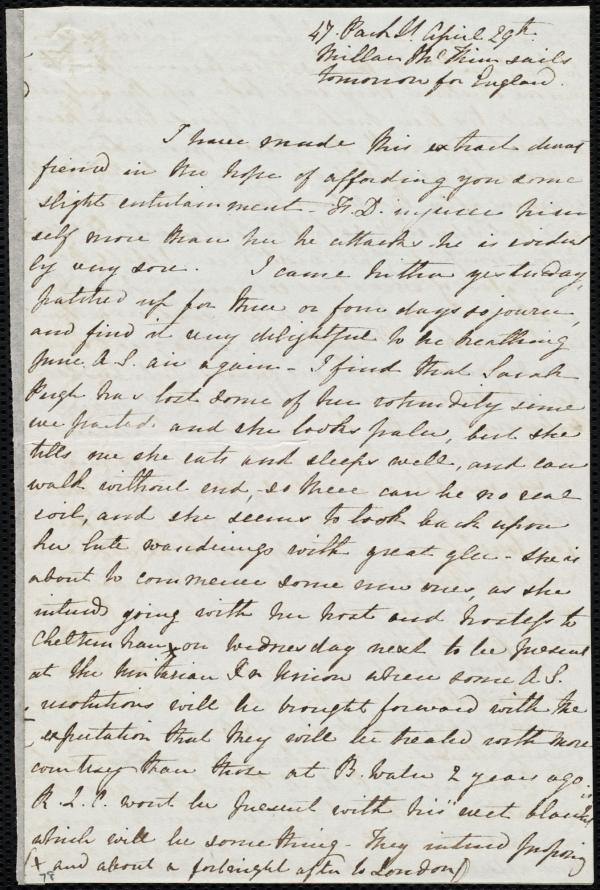 47. Park St. April 29th
Millar Mc Kim sails
tomorrow for England.
I have made this extract dear
friend in the hope of affording you some
slight entertainment - F. D. injures him
self more than her he attacks he is evident
ly very sore. I came hither yesterday,
patched up for three or four days sojourn,
and find it very delightful to be breathing
pure A. S. air again - I find that Sarah
Pugh has lost some of her rotundity since
we parted and she looks paler, but she
tells me she eats and sleeps well, and can
walk without end, so there can be no real
evil, and she seems to look back upon
her late wanderings with great glee - she is
about to commence some new ones, as she
intends going with her host and hostess to
Cheltenham x on Wednesday next to be present
at the Unitarian Un Union where some A. S.
resolutions will be brought forward with the
expectation that they will be treated with more
courtesy than those at B. Water 2 years ago
R. L. C. wont be present with his "wet blanket"
which will be something - They intend proposing
(x and about a fortnight after to London)
78